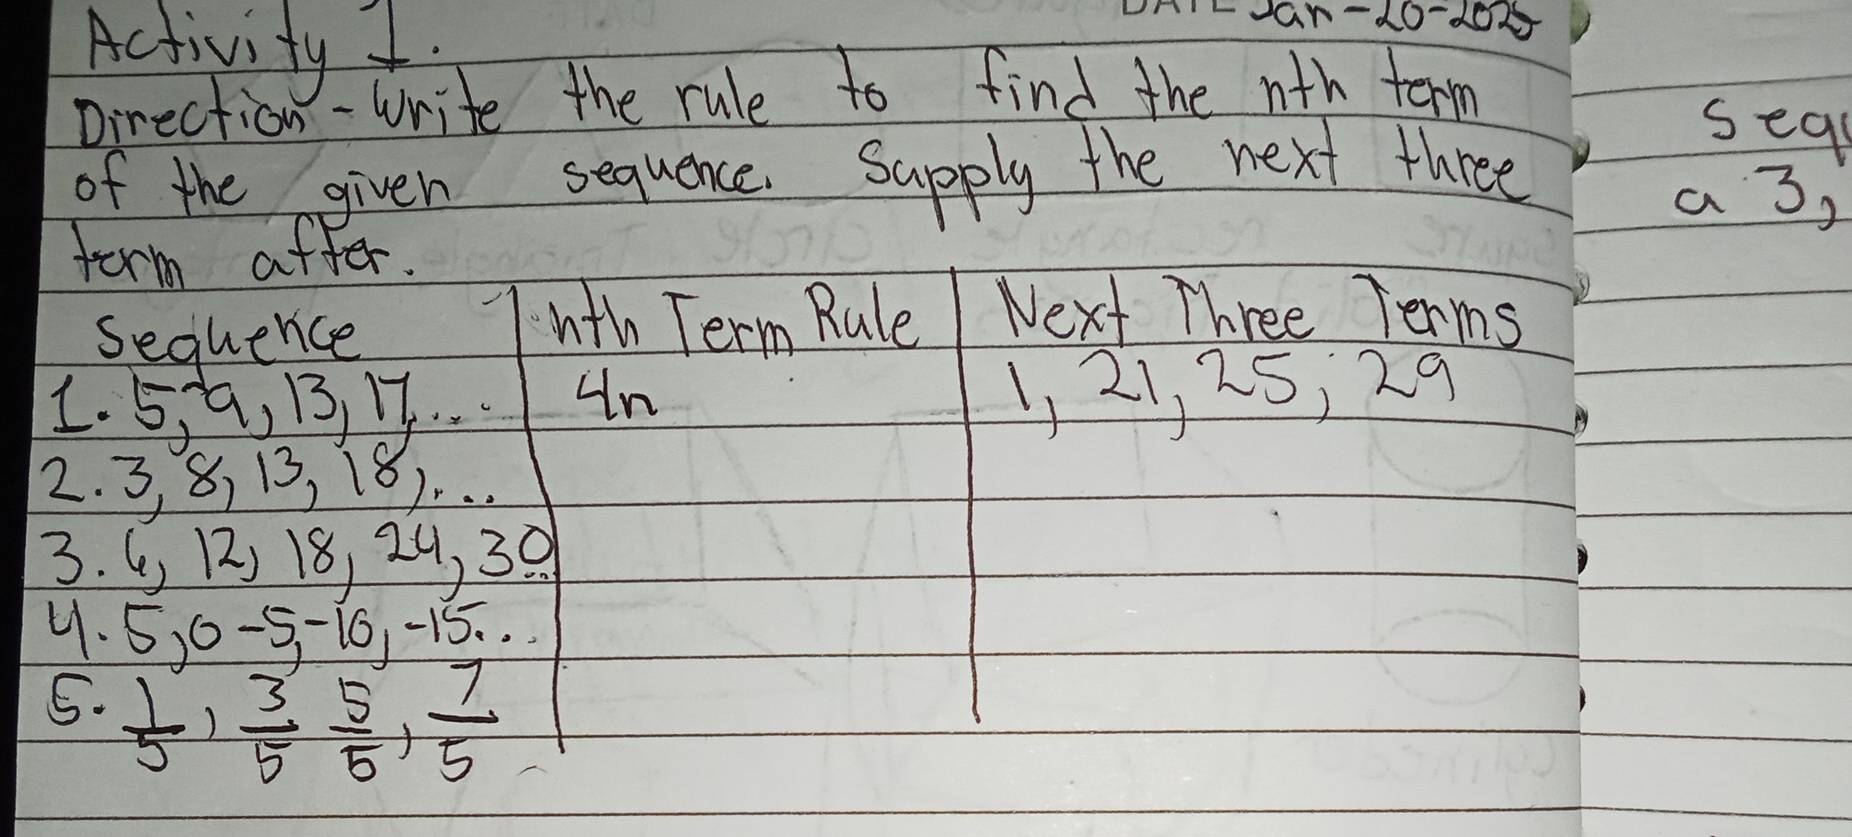 DATE Jan-20-2025
Activity 1.
Direction - Write the rule to find the nth term
of the given sequence. Supply the next three
term after.
Sequence nth Term Rule Next Three Terms
1. 5, 9, 13, 17, ... 4n 1, 21, 25, 29
2. 3, 8, 13, 18, ...
3. 6, 12, 18, 24, 30...
4. 5, 0 -5, -10, -15...
5. 1/5, 3/5 5/5, 7/5
a 3,